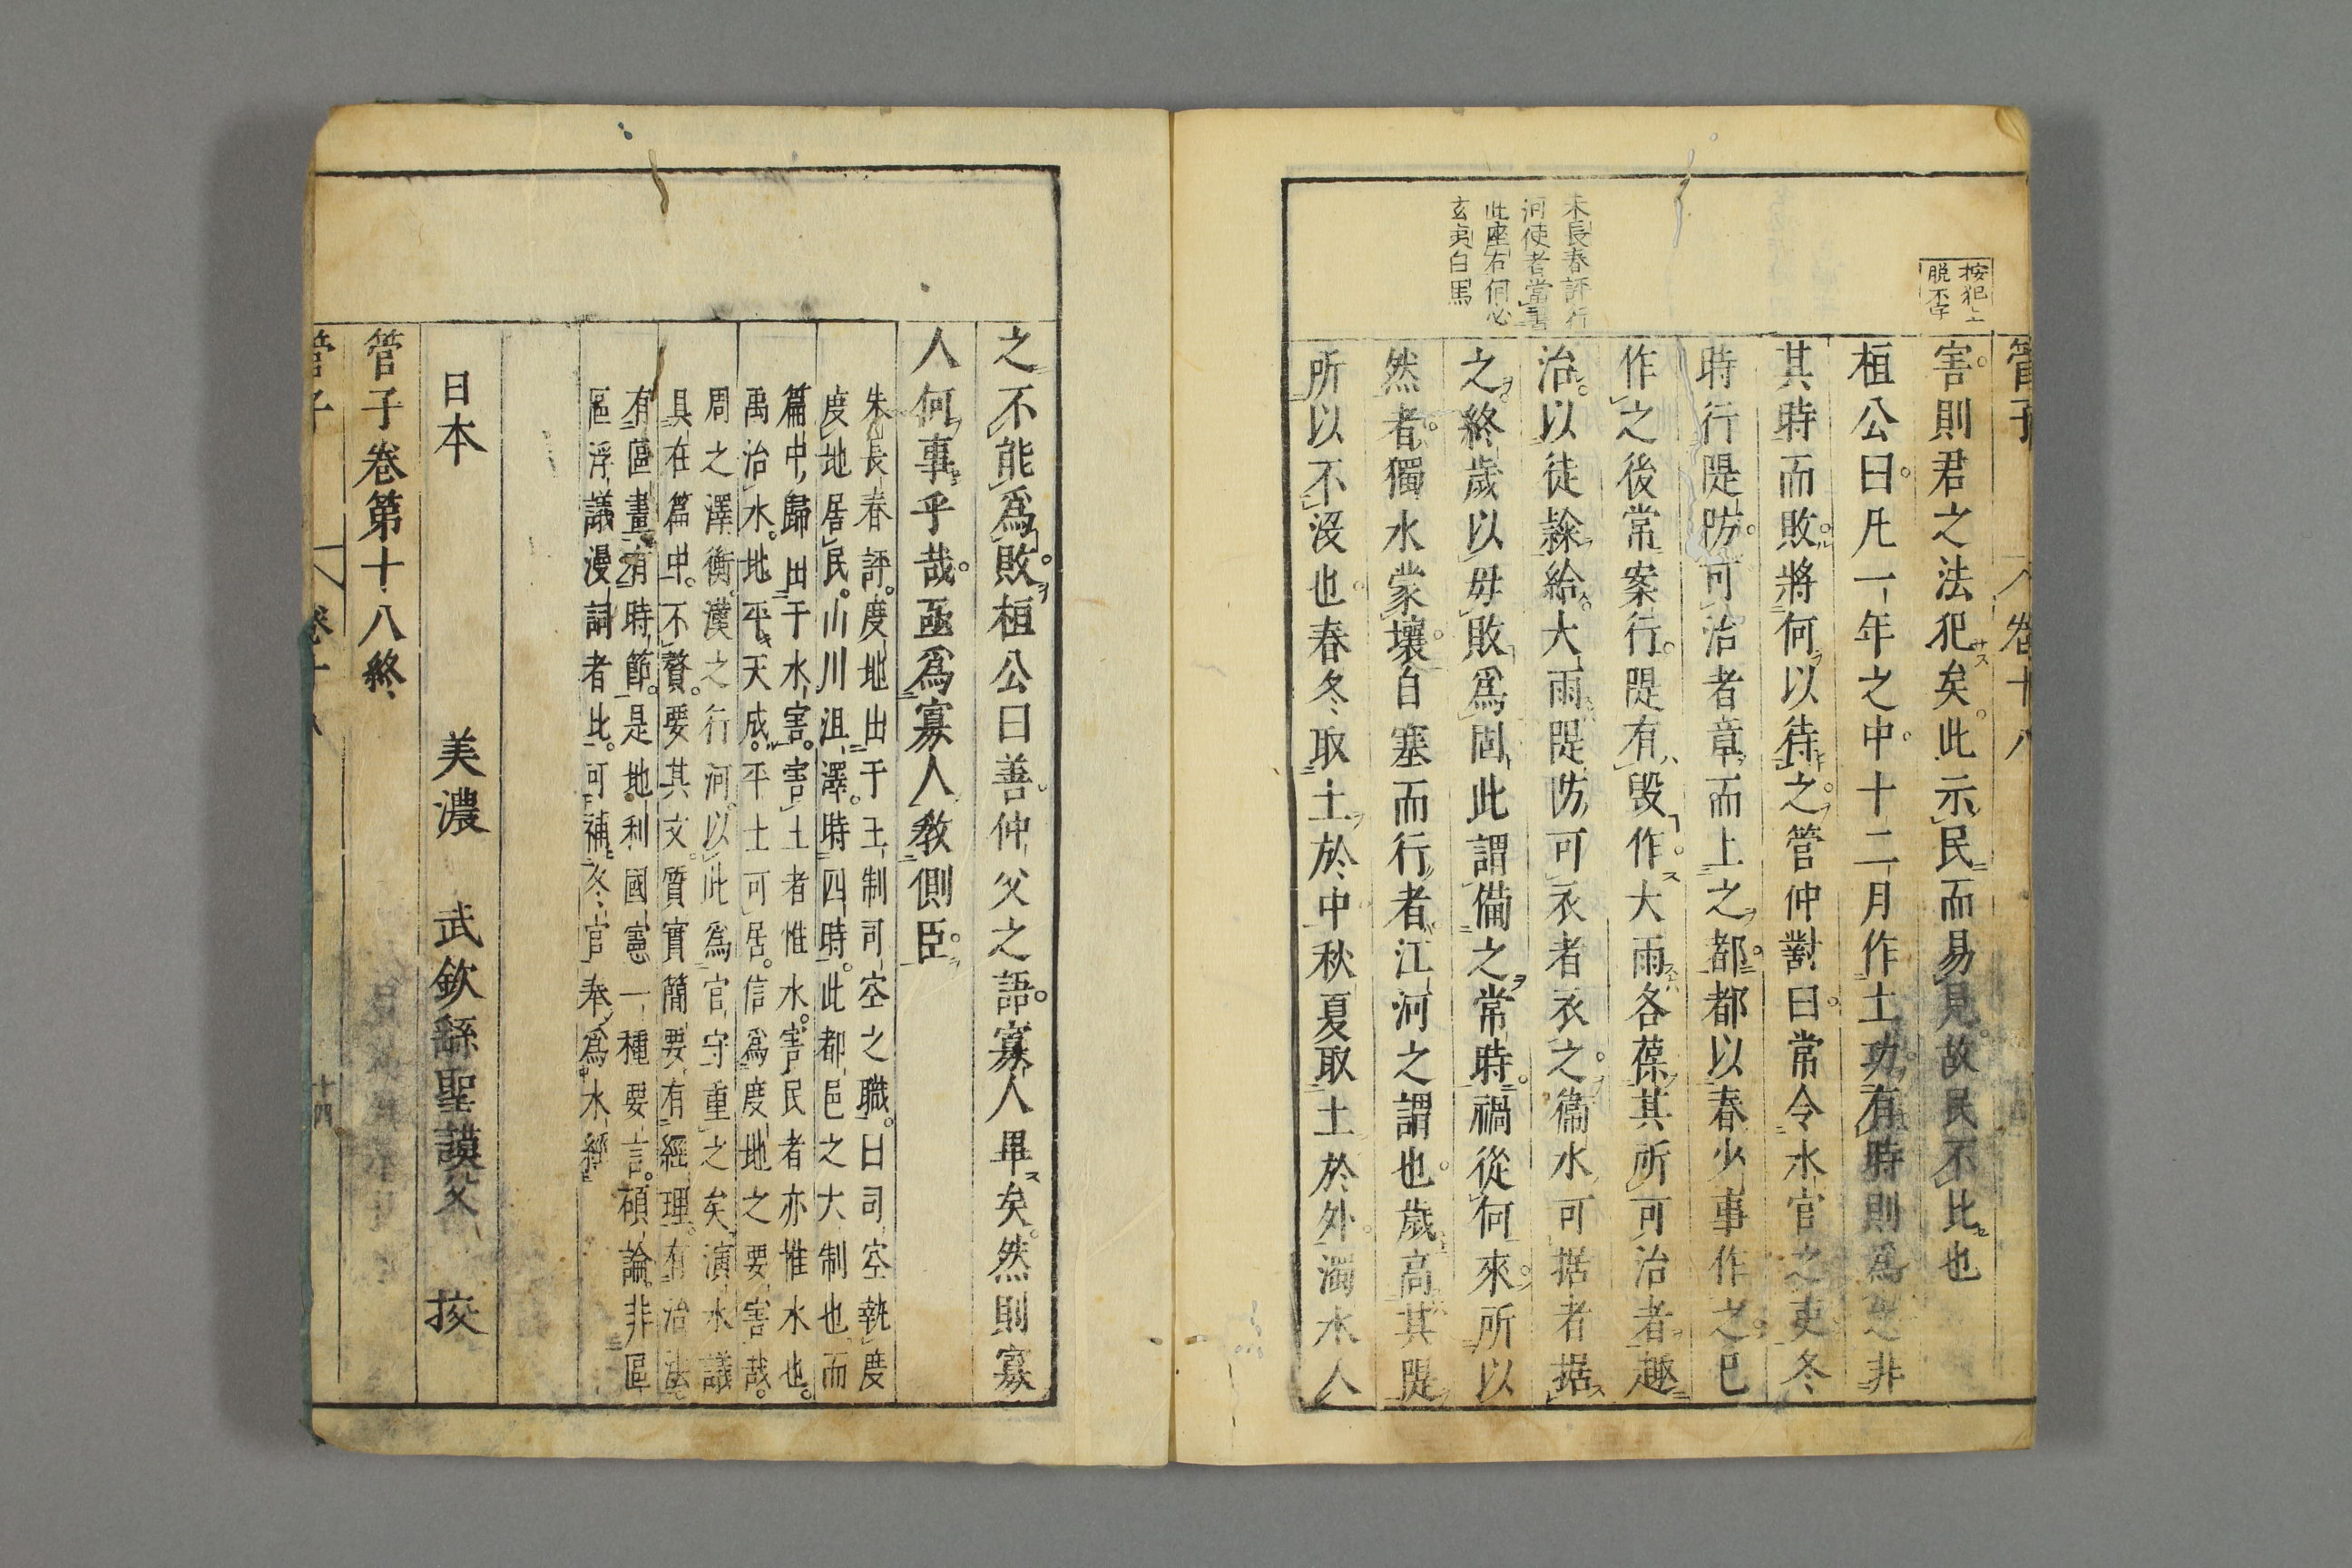 管子 卷十八
按犯上
脱不字
害則君之法犯矣此示民而易見故民不比也
桓公曰凡一年之中十二月作土功有時則爲之非
其時而敗將何以待之管仲對曰常令水官之吏冬
時行隄防可治者章而上之都都以春少事作之已
作之後常案行隄有毀作大雨各葆其所可治者趣
朱長春評行
河使者當書
此座右何必
玄夷白馬
治以徒隸給大雨隄防可衣者衣之衝水可据者据
之終歲以毋敗爲固此謂備之常時禍從何來所以
然者獨水蒙壤自塞而行者江河之謂也歲高其隄
所以不沒也春冬取土於中秋夏取土於外濁水入
之不能爲敗桓公曰善仲父之語寡人畢矣然則寡
人何事乎哉亟爲寡人教側臣
朱長春評度地出于王制司空之職曰司空執度
度地居民山川沮澤時四時此都邑之大制也而
篇中歸出于水害害土者惟水害民者亦惟水也
禹治水地平天成平土可居信爲度地之要害哉
周之澤衡漢之行河以此爲官守重之矣演水議
具在篇中不贅要其文質實簡要有經理有治法
有區畫有時節是地利國憲一種要言碩論非區
區浮議漫詞者比可補冬官奉爲水經
日本 美濃 武欽繇聖謨父 挍
管子卷第十八終
管子 卷十八 十四